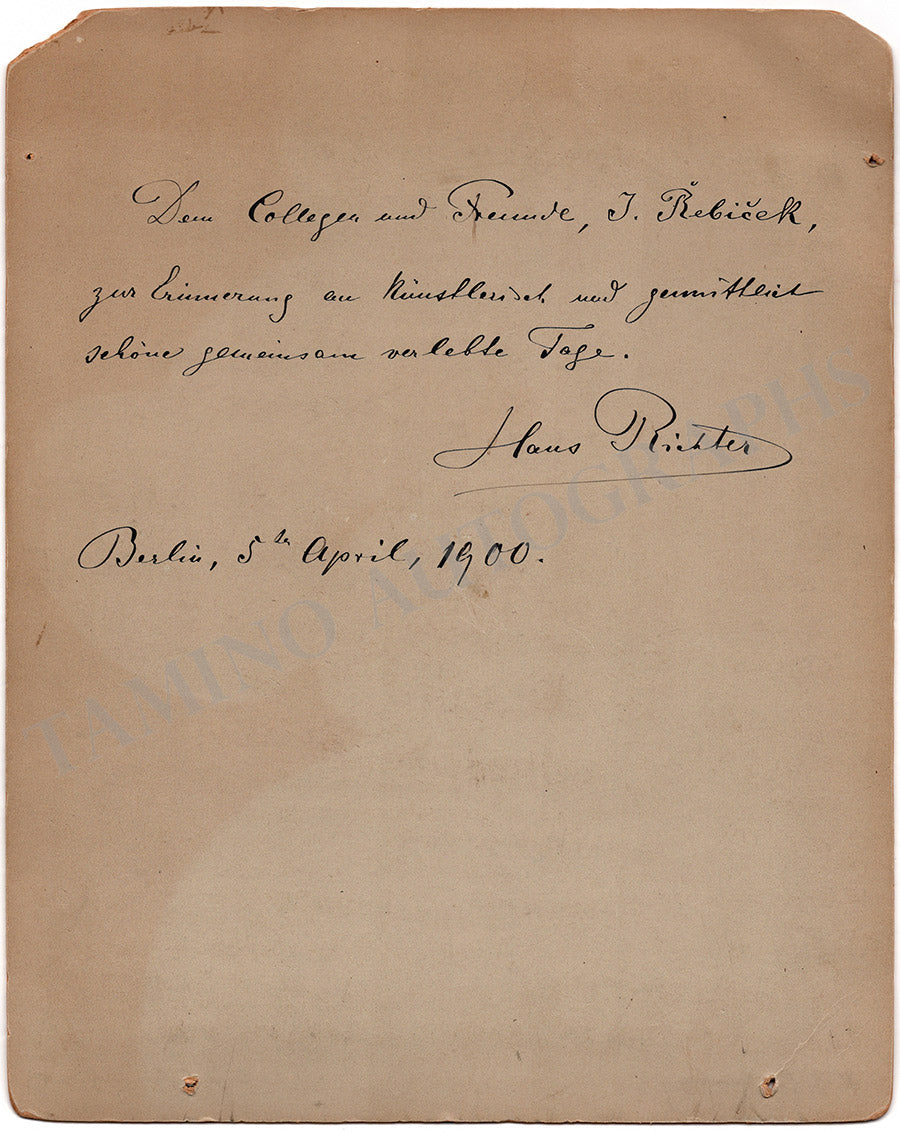 Dem Collegen und Freunde, J. Řebiček,
zur Erinnerung an künstlerisch und gemüthlich
schöne gemeinsam verlebte Tage.
Hans Richter
Berlin, 5ter April, 1900.
TAMINO AUTOGRAPHS